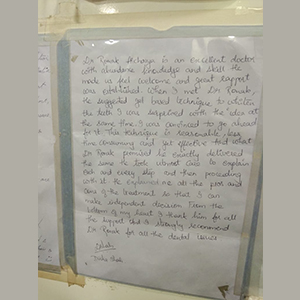 Dr Ronak Acharya is an excellent doctor
with abundance knowledge and skill. He
made us feel welcome and great rapport
was established. When I met Dr Ronak,
He suggested gel based technique to whiten
the teeth I was surprised with the idea at
the same time I was convinced to go ahead
for it. This technique is reasonable, less
time consuming and yet effective and what
Dr Ronak promised he exactly delivered
the same. He took utmost care to explain
each and every step and then proceeding
with it. He explained me all the pros and
cons of the treatment so that I can
make independent decision. From the
bottom of my heart I thank him for all
the support and I strongly recommend
Dr Ronak for all the dental issues